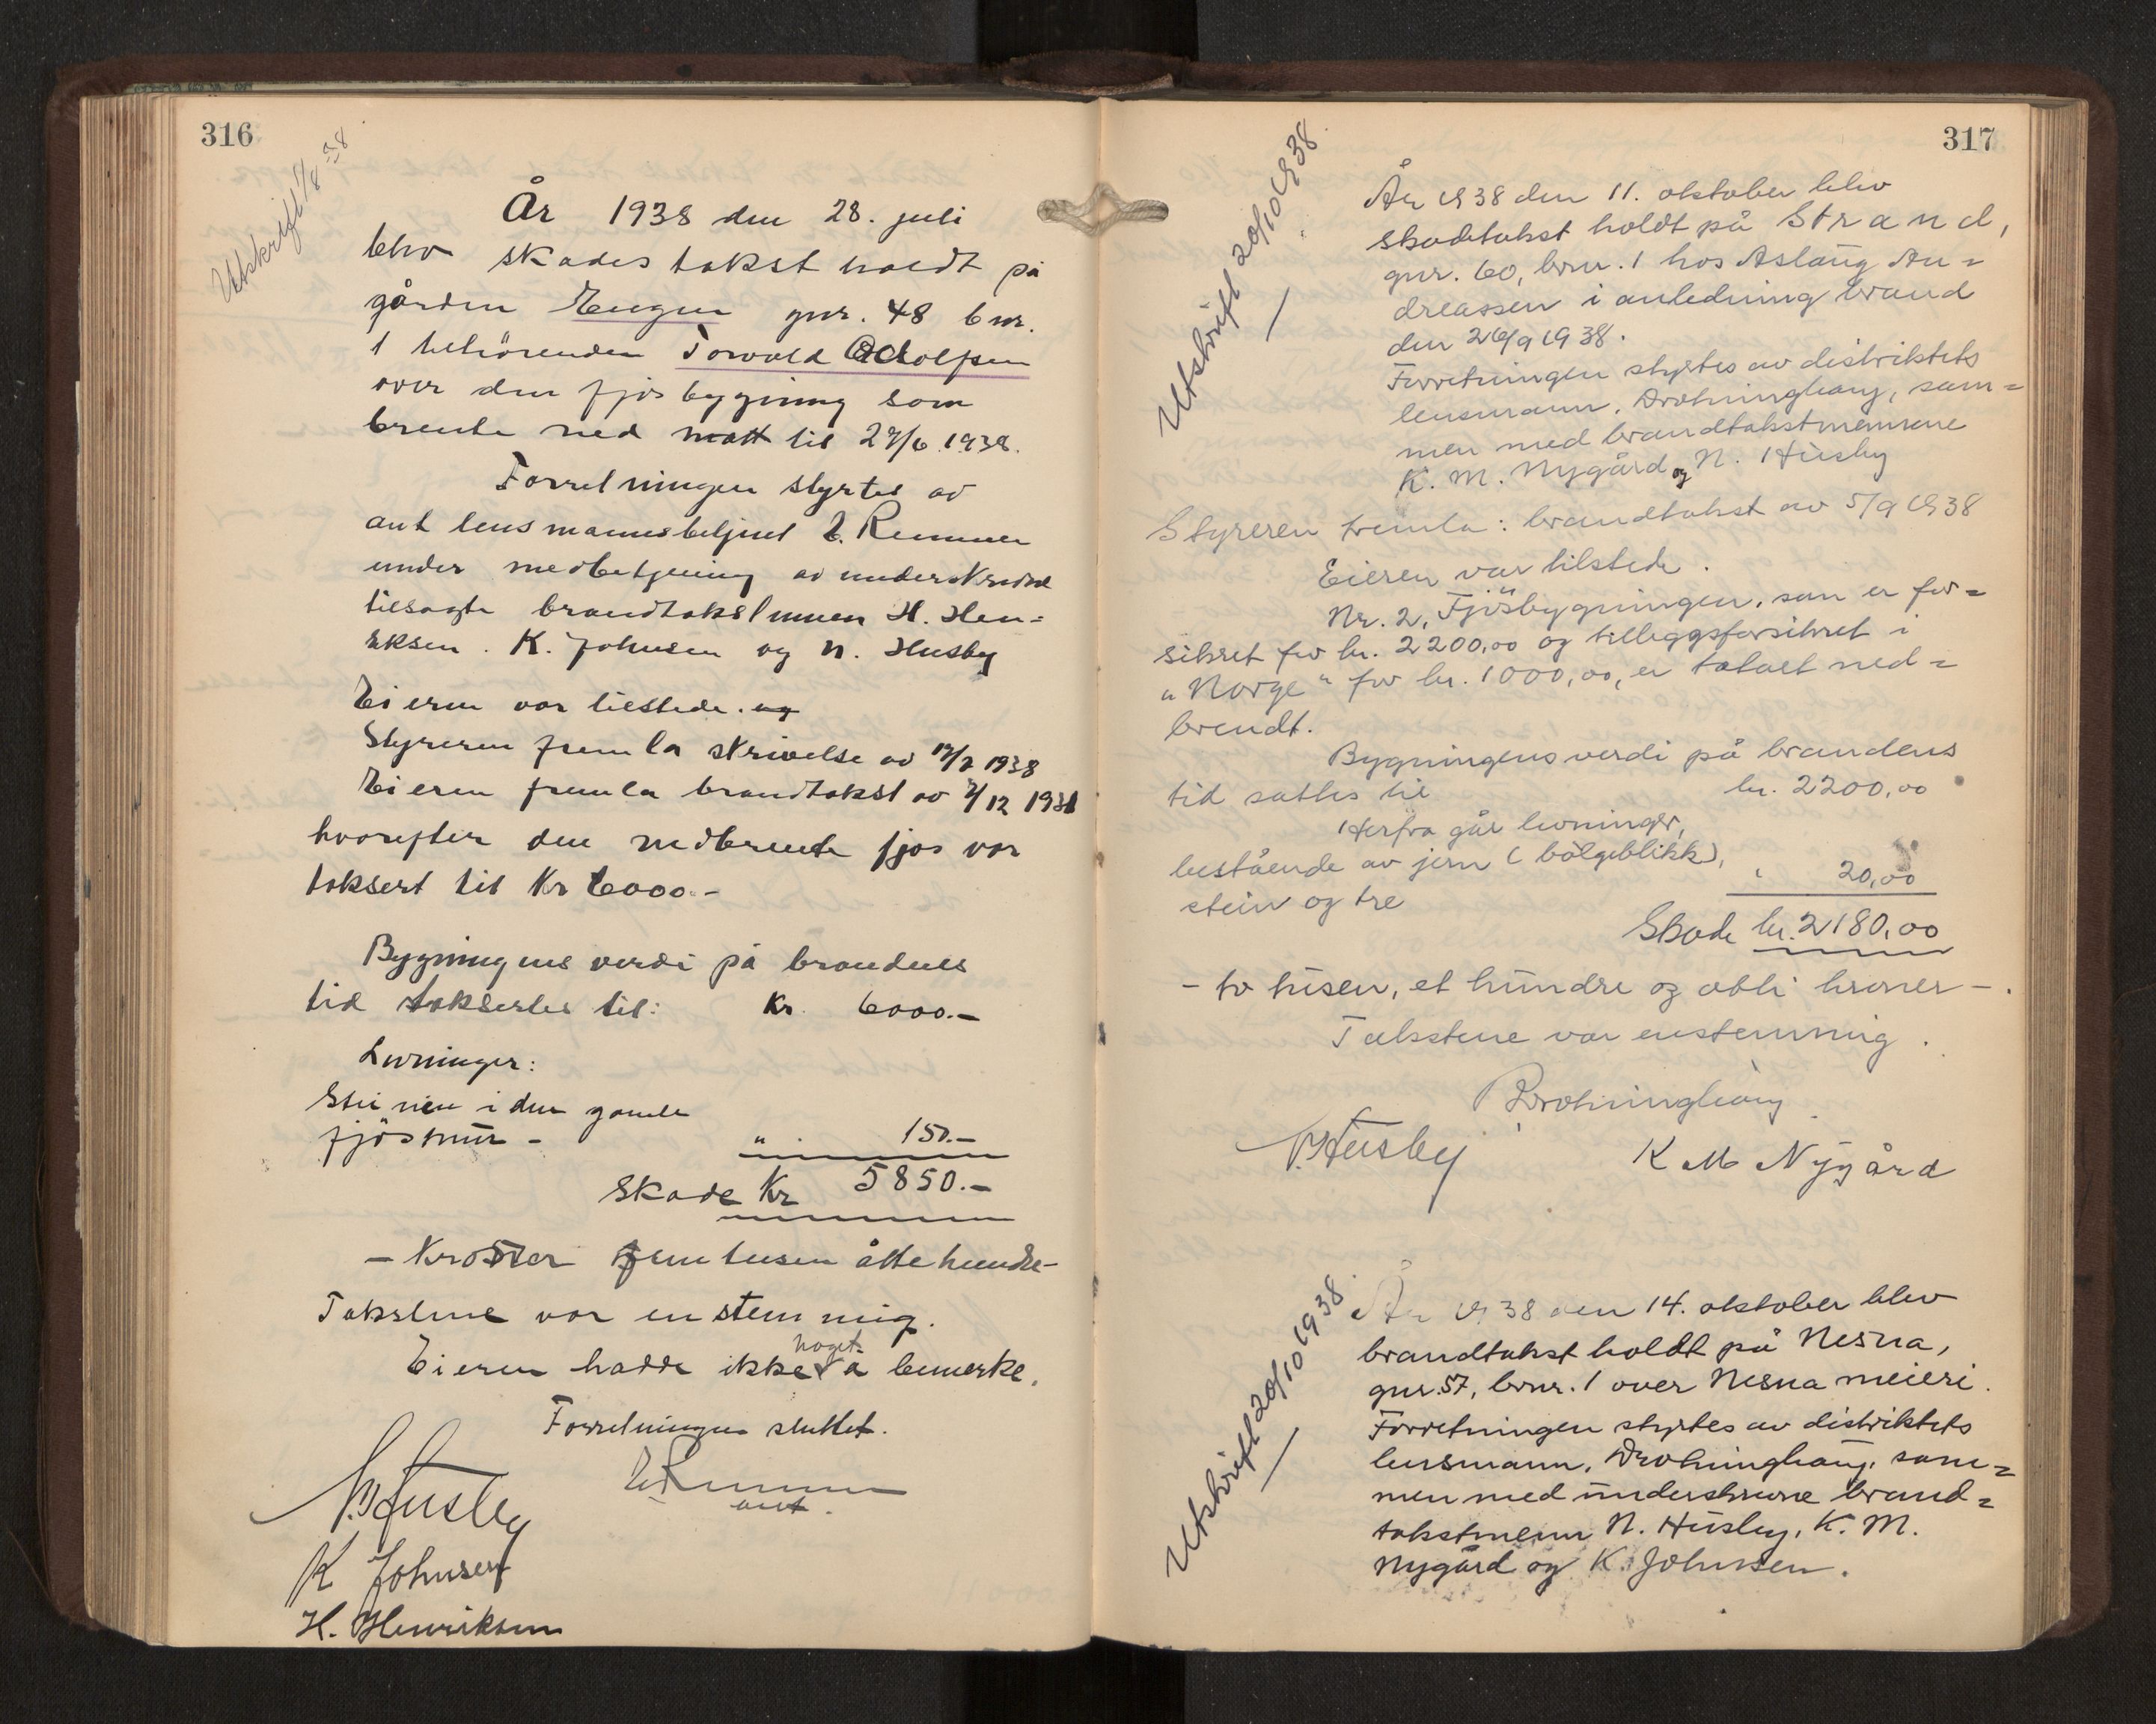 316
Utskrift 1/8 38
År 1938 den 28. juli
blev skadestakst holdt på
gården Engen gnr. 48 bnr.
1 tilhörende Torvald Adolfsen
over den fjösbygning som
brente ned natt til 27/6 1938.
Forretningen styrtes av
aut lensmannsbetjent E. Remmen
under medbetjening av underskrevne
tilsagte brandtakstmenn H. Hen=
riksen. K. Johnsen og N. Husby
Eieren var tilstede. og
Styreren fremla skrivelse av 12/7 1938
Eieren fremla brandtakst av 2/12 1931
hvorefter den nedbrente fjös var
taksert til Kr 6000.-
Bygningens verdi på brandens
tid takseres til: Kr. 6000.-
Levninger:
Steinen i den gamle
fjösmur - " 150.-
Skade Kr 5850.-
- Kroner femtusen åttehundre-
Takstene var enstemmig.
Eieren hadde ikke noget å bemerke.
Forretningen sluttet.
N. Husby
E. Remmen
aut.
K Johnsen
H. Henriksen
317
Utskrift 20/10 1938
År 1938 den 11. oktober blev
skadetakst holdt på Strand,
gnr. 60, bnr. 1 hos Aslaug An=
dreassen i anledning brand
den 26/9 1938.
Forretningen styrtes av distriktets
lensmann, Dronninghaug, sam=
men med brandtakstmennene
K. M. Nygård og N. Husby
Styreren fremla: brandtakst av 5/9 1938
Eieren var tilstede.
Nr. 2, Fjösbygningen, som er for=
sikret for kr. 2200,00 og tilleggsforsikret i
"Norge" for kr. 1000,00, er totalt ned=
brendt.
Bygningens verdi på brandens
tid sattes til kr. 2200,00
Herfra går levninger,
bestående av jern (bölgeblikk),
stein og tre " 20,00
Skade kr. 2180,00
- to tusen, et hundre og otti kroner -.
Takstene var enstemmig.
Dronninghaug
N. Husby
K M Nygård
Utskrift 20/10 1938
År 1938 den 14. oktober blev
brandtakst holdt på Nesna,
gnr. 57, bnr. 1 over Nesna meieri.
Forretningen styrtes av distriktets
lensmann, Dronninghaug, sam=
men med underskrevne brand=
takstmenn N. Husby, K. M.
Nygård og K. Johnsen.